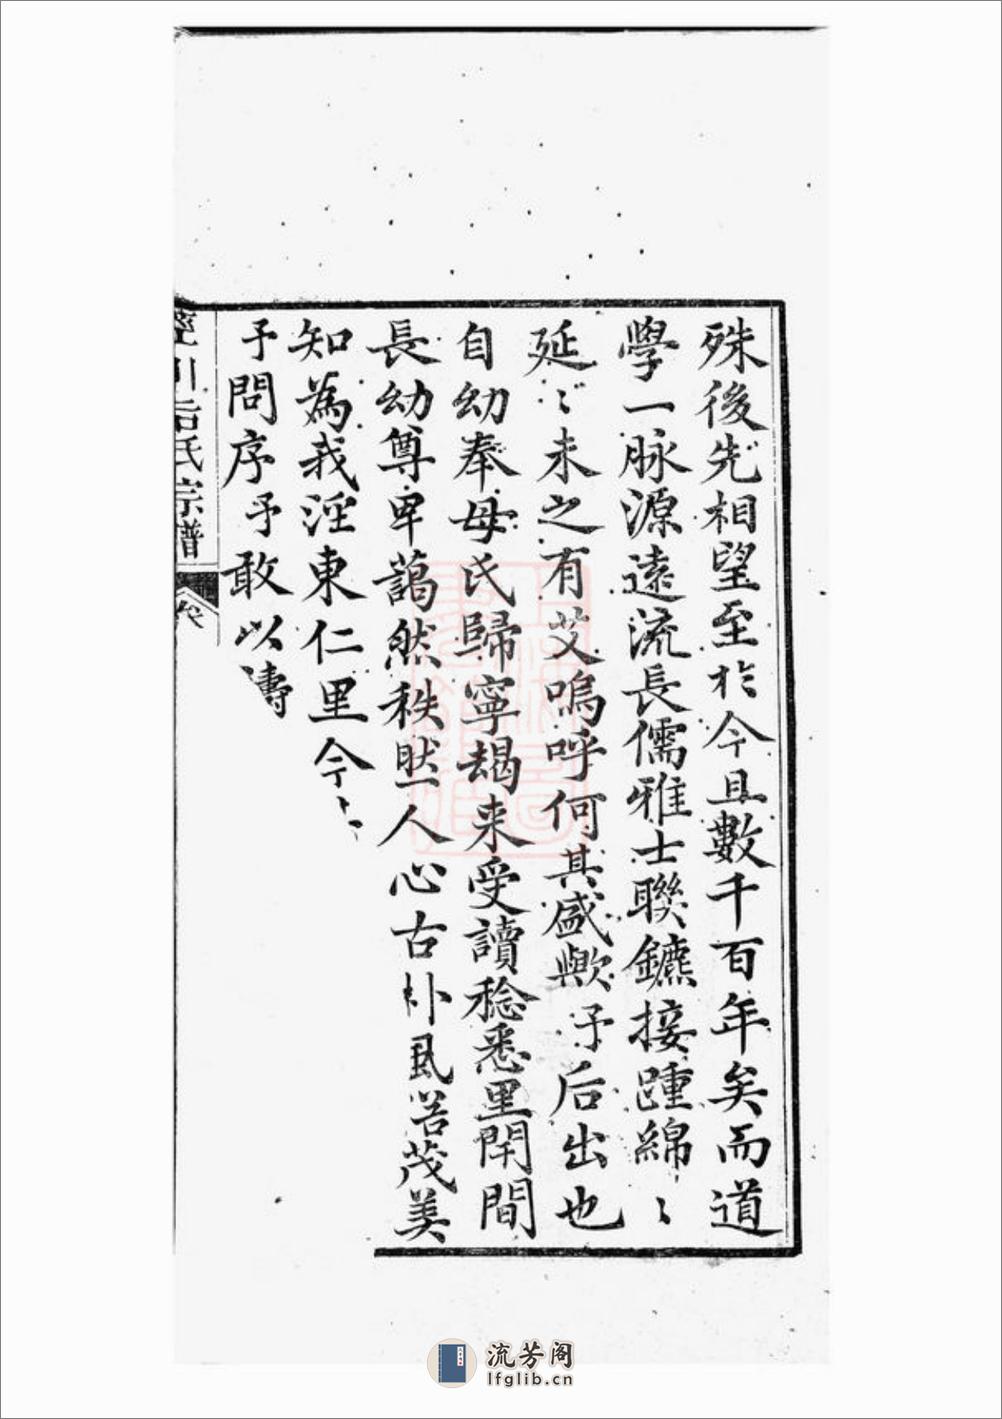 殊後先相望至於今且數千百年矣而道
學一脉源遠流長儒雅士聯鑣接踵綿〻
延〻未之有艾嗚呼何其盛歟予后出也
自幼奉母氏歸寧朅来受讀稔悉里閈間
長幼尊卑藹然秩然人心古朴風俗茂美
知為我涇東仁里今
予問序予敢以濤
涇川后氏宗譜
流芳阁
lfglib.cn